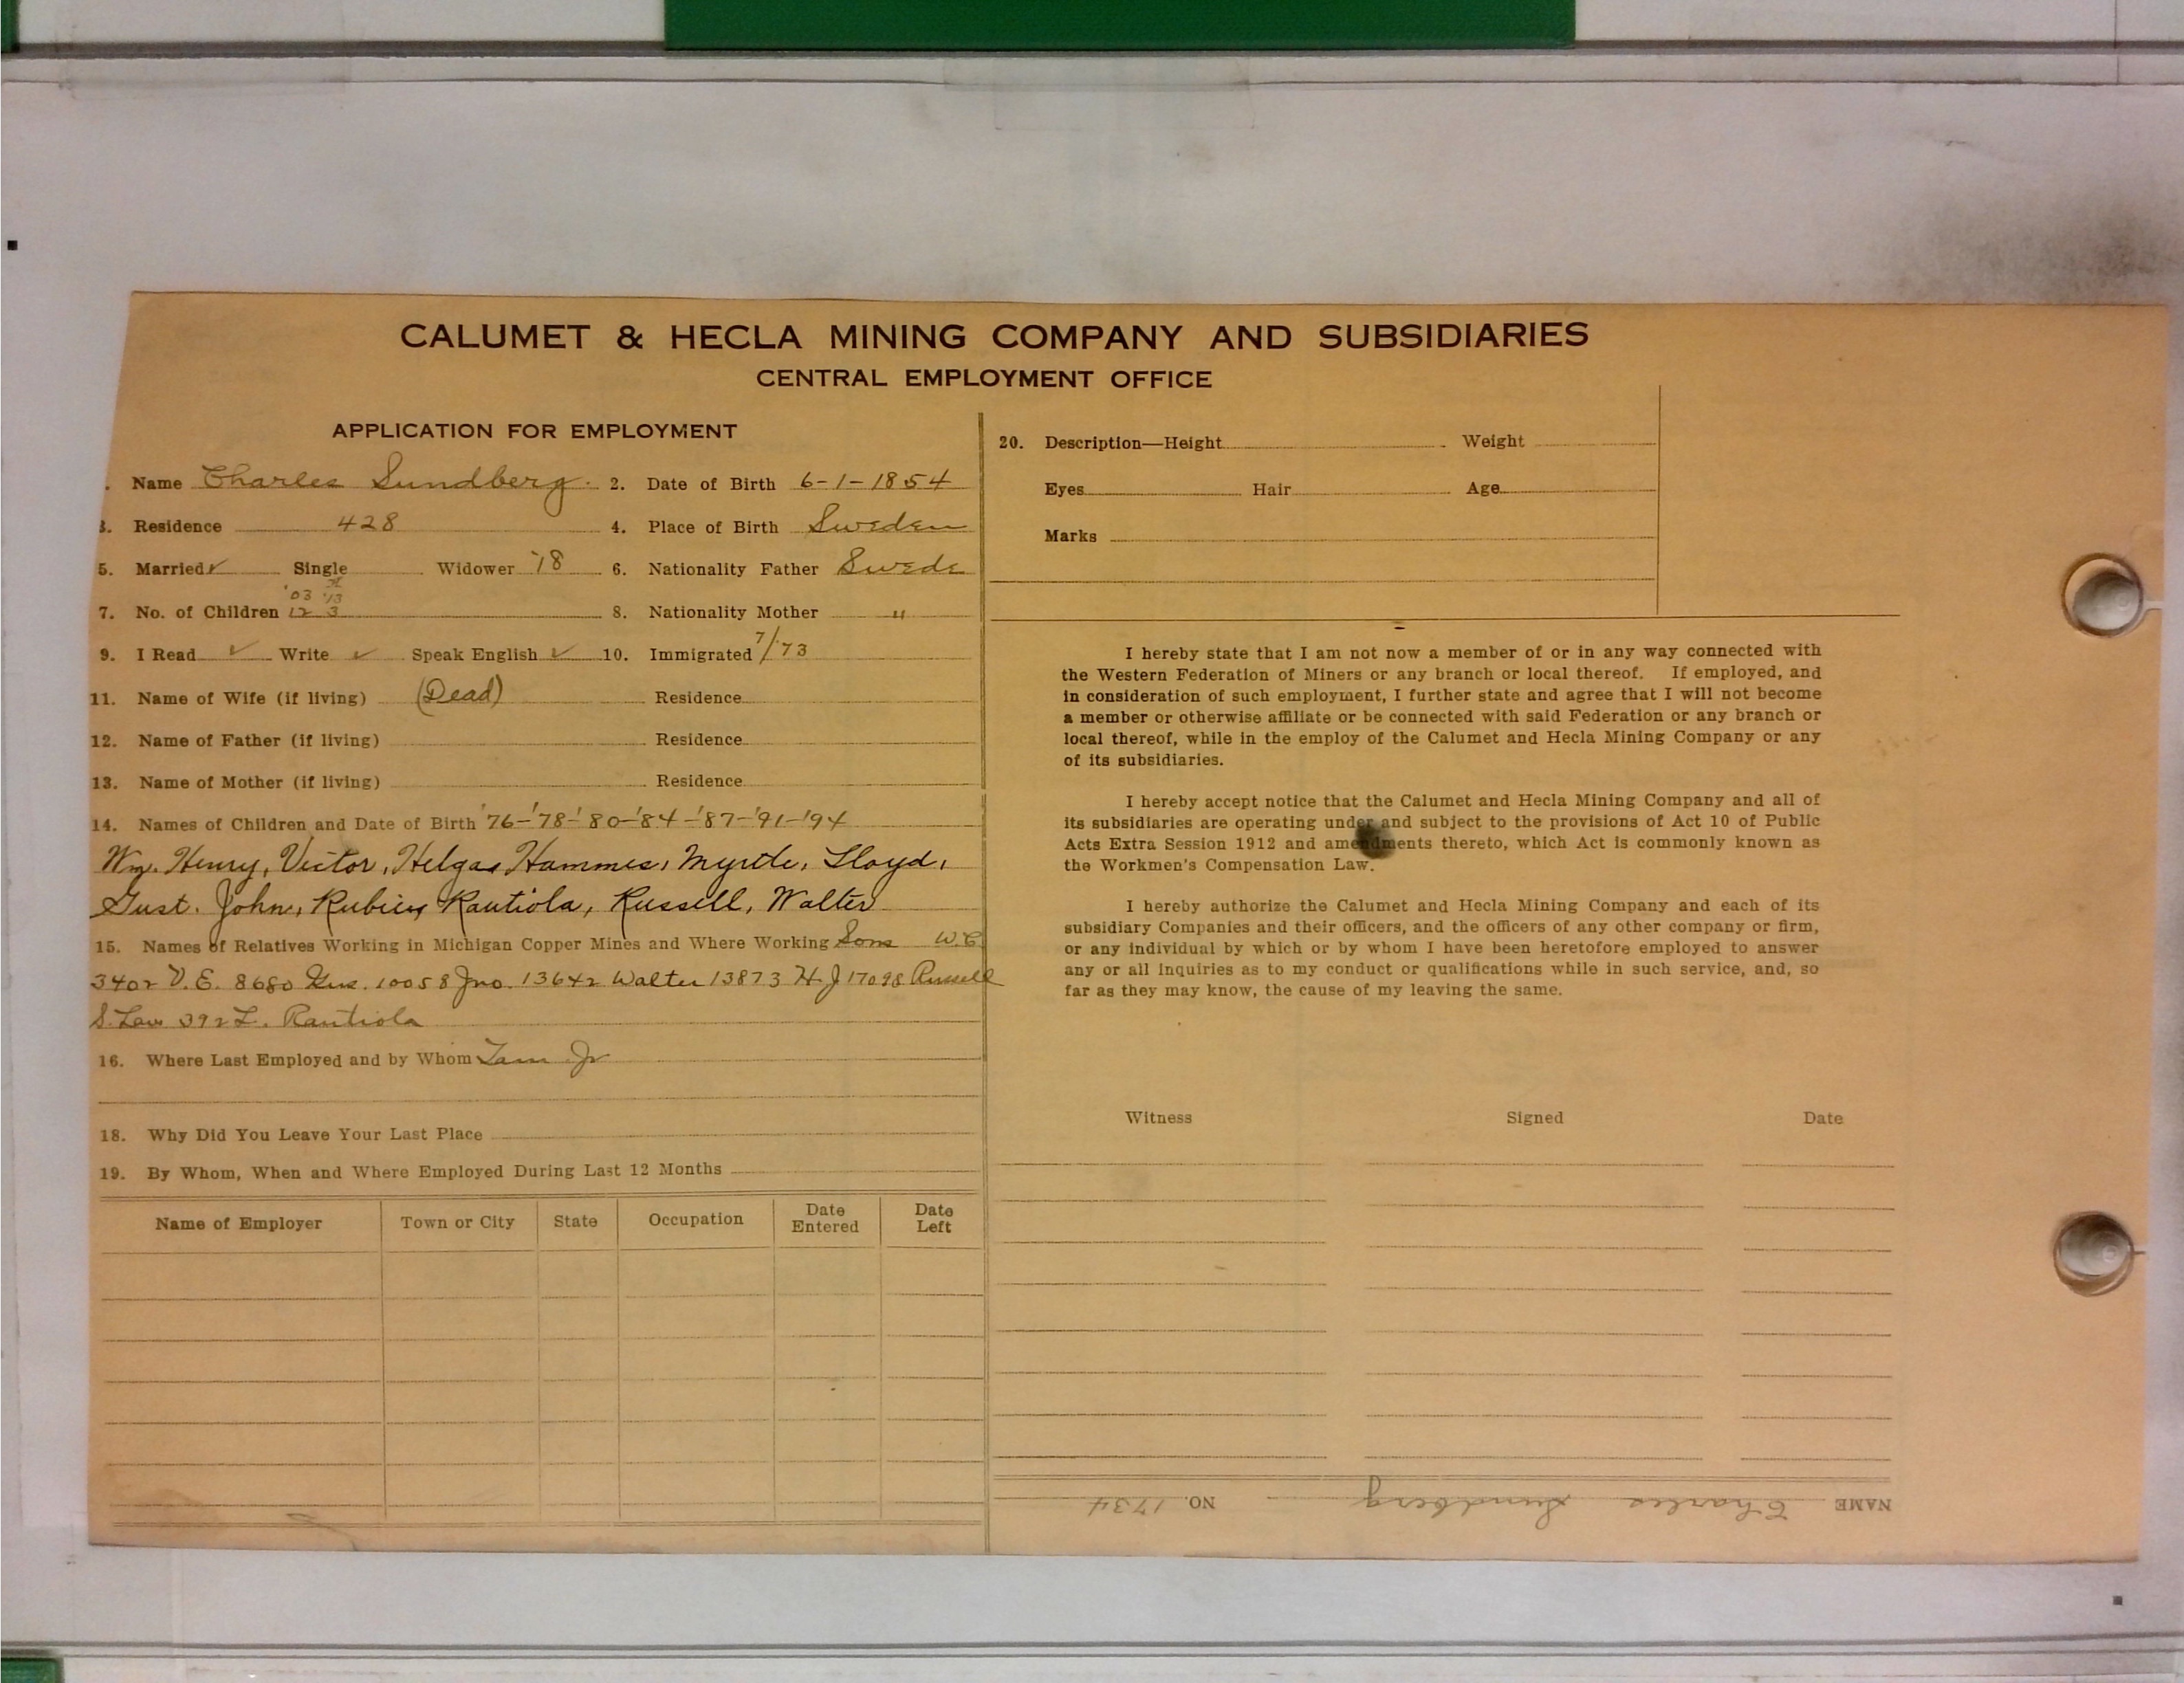 CALUMET & HECLA MINING COMPANY AND SUBSIDIARIES
CENTRAL EMPLOYMENT OFFICE
APPLICATION FOR EMPLOYMENT
. Name Charles Sundberg. 2. Date of Birth 6-1-1854
3. Residence 428 4. Place of Birth Sweden
5. Married ✓ Single Widower '18 6. Nationality Father Swede
'03 '13
7. No. of Children 12 3 8. Nationality Mother "
9. I Read ✓ Write ✓ Speak English ✓ 10. Immigrated 7/73
11. Name of Wife (if living) (Dead) Residence
12. Name of Father (if living) Residence
13. Name of Mother (if living) Residence
14. Names of Children and Date of Birth '76-'78-'80-'84-'87-'91-'94
Wm. Henry, Victor, Helga Hammes, Myrtle, Lloyd,
Gust. John, Kautiola, Russell, Walter
15. Names of Relatives Working in Michigan Copper Mines and Where Working Sons W.C.
3402 V.E. 8680 Gus. 10058 Jno. 13642 Walter 13873 H.J 17098 Russell
S. Law 392 L. Rautiola
16. Where Last Employed and by Whom Tam Jr
18. Why Did You Leave Your Last Place
19. By Whom, When and Where Employed During Last 12 Months
Name of Employer Town or City State Occupation Date Entered Date Left
20. Description—Height Weight
Eyes Hair Age
Marks
I hereby state that I am not now a member of or in any way connected with
the Western Federation of Miners or any branch or local thereof. If employed, and
in consideration of such employment, I further state and agree that I will not become
a member or otherwise affiliate or be connected with said Federation or any branch or
local thereof, while in the employ of the Calumet and Hecla Mining Company or any
of its subsidiaries.
I hereby accept notice that the Calumet and Hecla Mining Company and all of
its subsidiaries are operating under and subject to the provisions of Act 10 of Public
Acts Extra Session 1912 and amendments thereto, which Act is commonly known as
the Workmen's Compensation Law.
I hereby authorize the Calumet and Hecla Mining Company and each of its
subsidiary Companies and their officers, and the officers of any other company or firm,
or any individual by which or by whom I have been heretofore employed to answer
any or all inquiries as to my conduct or qualifications while in such service, and, so
far as they may know, the cause of my leaving the same.
Witness Signed Date
NAME Charles Sundberg NO. 1734